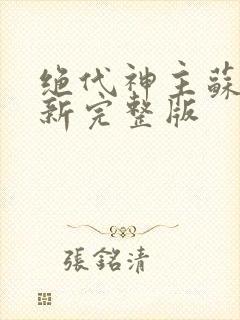 绝代神主蘇
新完整版
張銘清